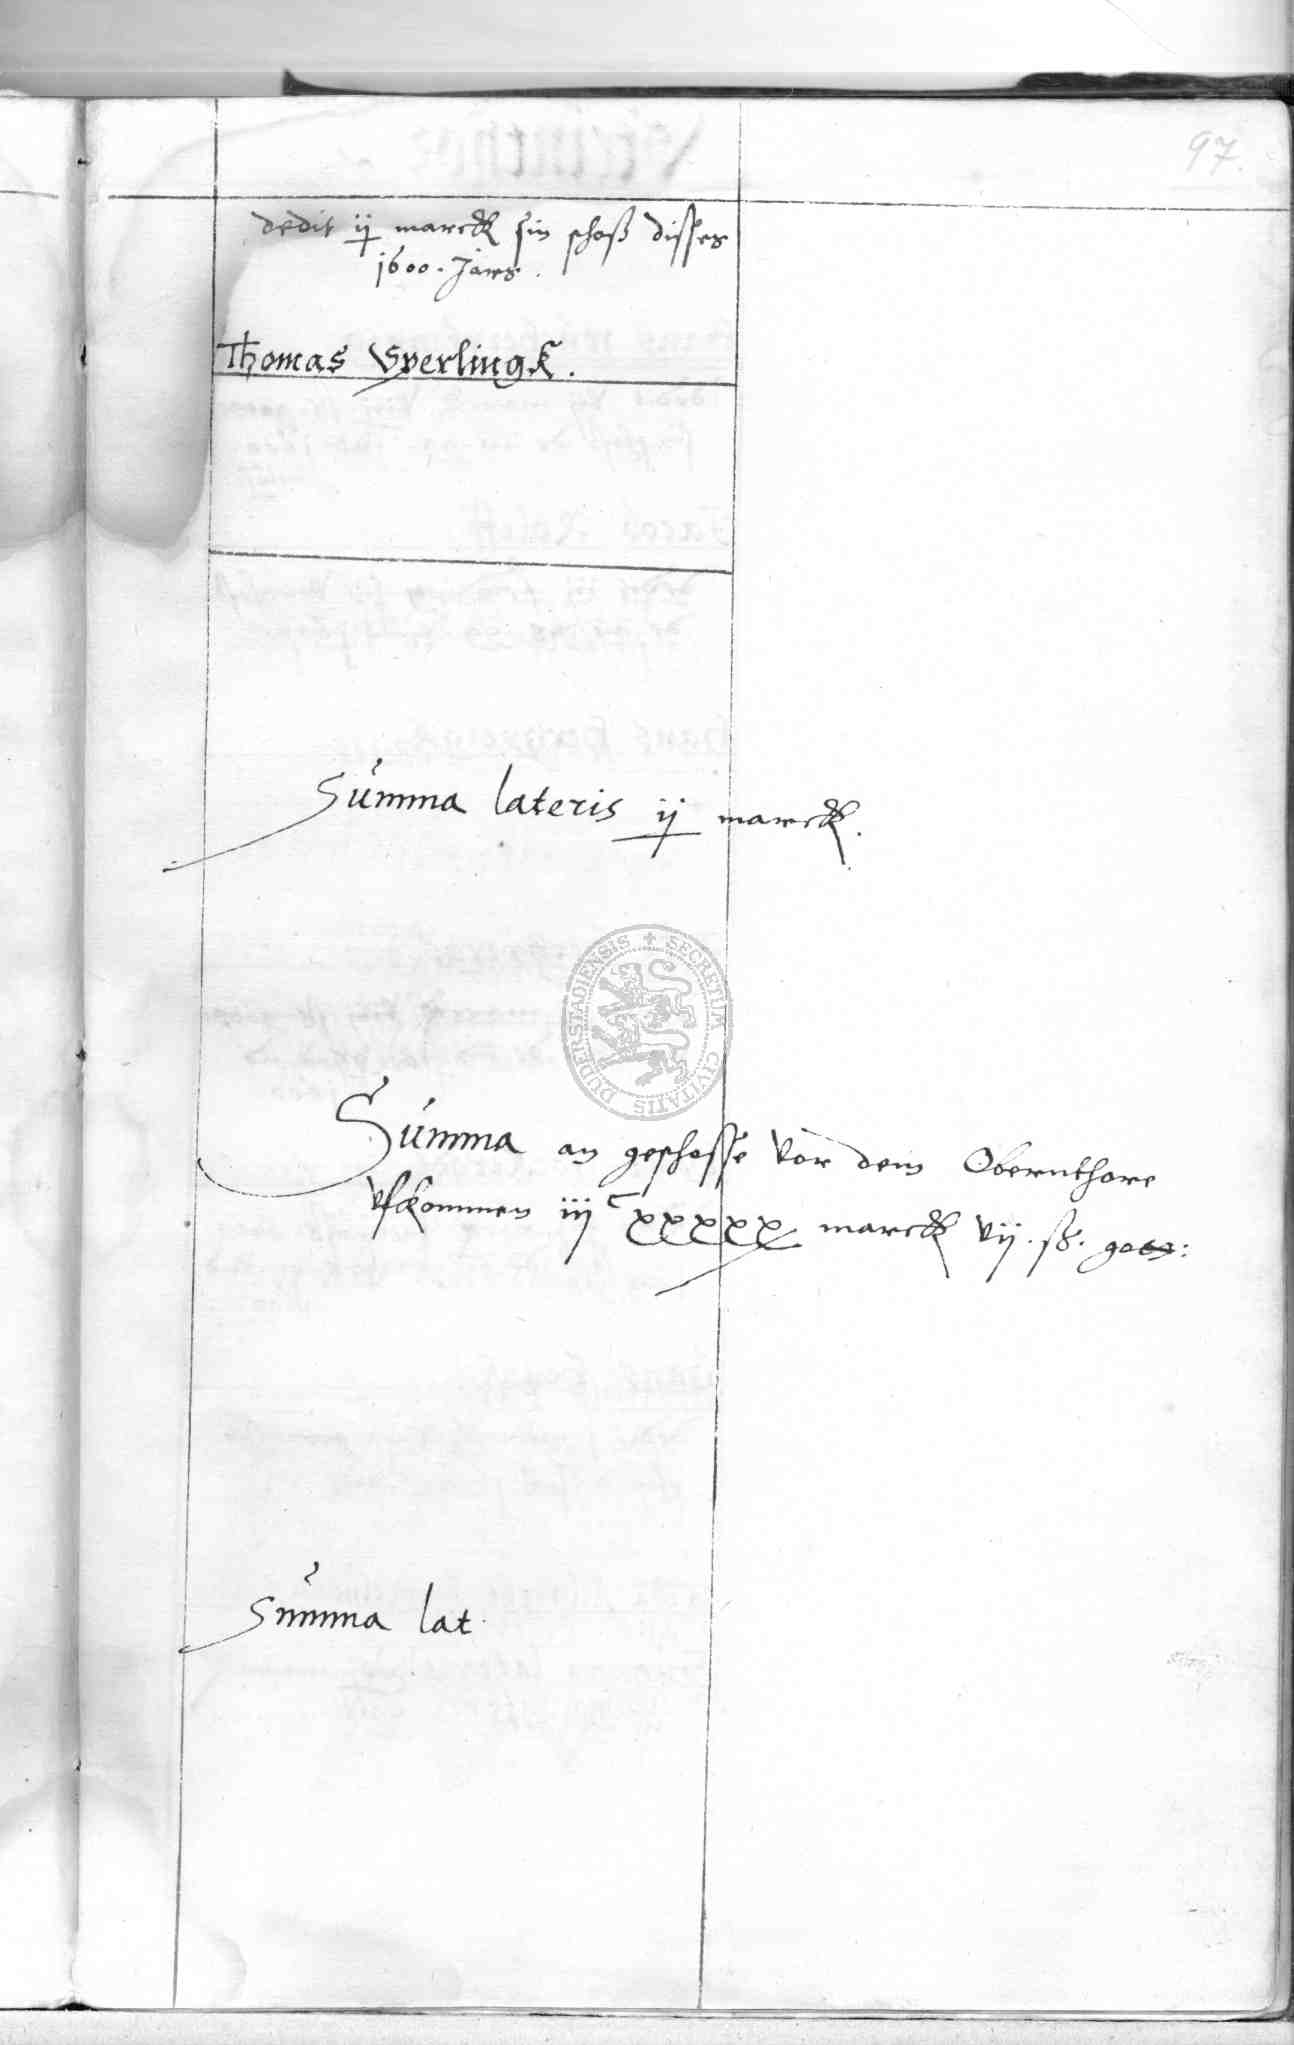 97.
dedit ij marck sin schoß disses
1600. Jars.
Thomas Sperlingk.
Summa lateris ij marck.
SECRETUM CIVITATIS DUDERSTADIENSIS
Summa an geschosse vor dem Obernthore
vfkommen iij c xxxxx marck vij. ß.
Summa lat.